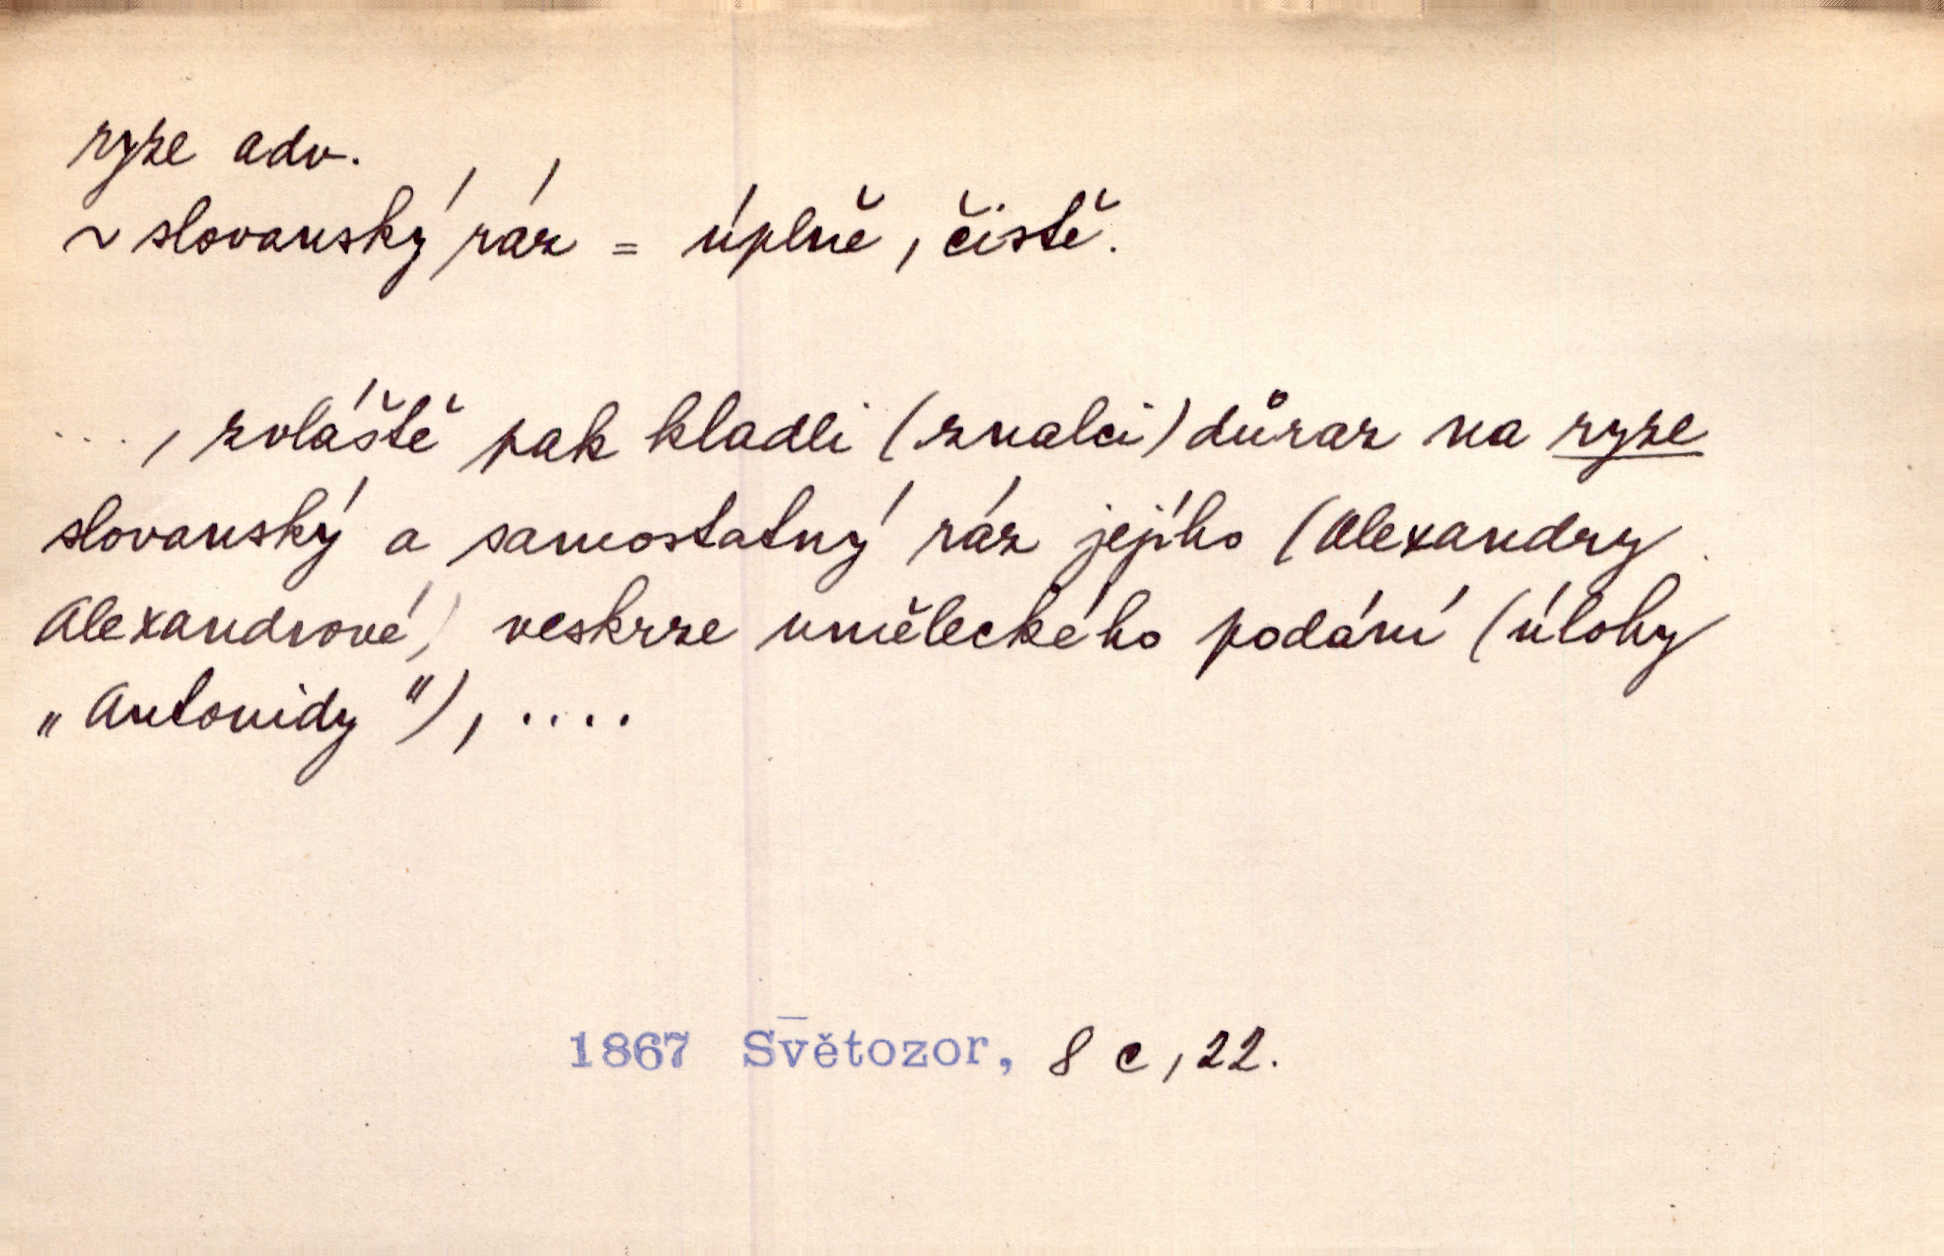 ryze adv.
~ slovanský ráz = úplně, čistě.
...., zvláště pak kladli (znalci) důraz na ryze
slovanský a samostatný ráz jejího (Alexandry
Alexandrové) veskrze uměleckého podání (úlohy
„Antonidy"), ....
1867 Světozor, 8 c, 22.